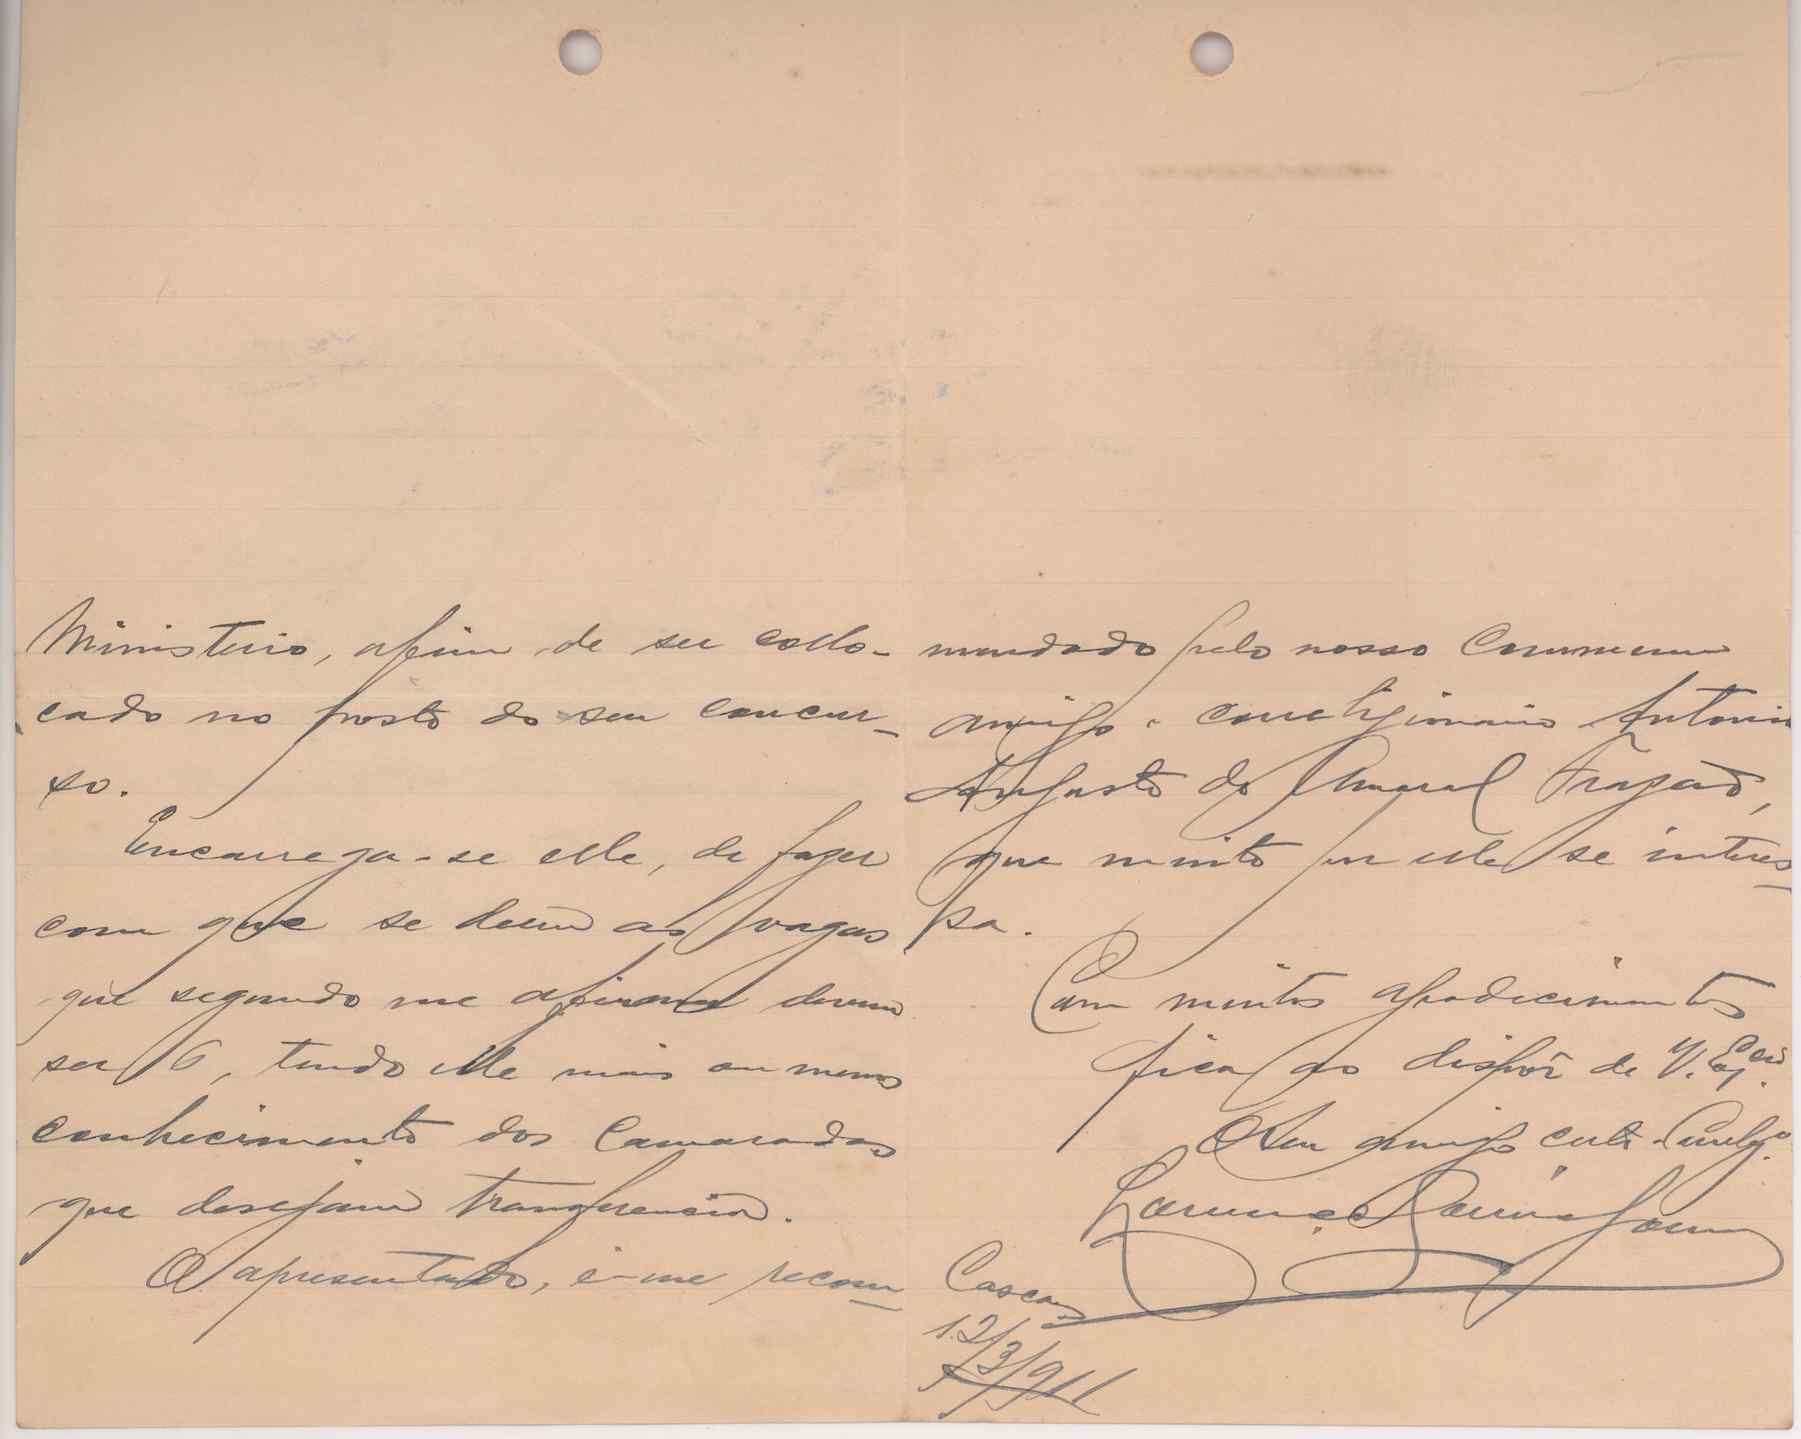 Ministerio, afim de ser collo-
cado no posto do seu concur-
so.
Encarrega-se elle, de fazer
com que se deem as vagas
que segundo me afirma devem
ser 6, tendo elle mais ou menos
conhecimento dos Camaradas
que desejam transferencia.
O apresentado, é-me recom-
mendado pelo nosso Commum
amigo e correligionario Antonio
Augusto do Amaral Frazão,
que muito por elle se interes-
sa.
Com muitos agradecimentos
fica ao dispôr de V. Ex.cia
O seu amigo certo
Cascaes
12/3/911